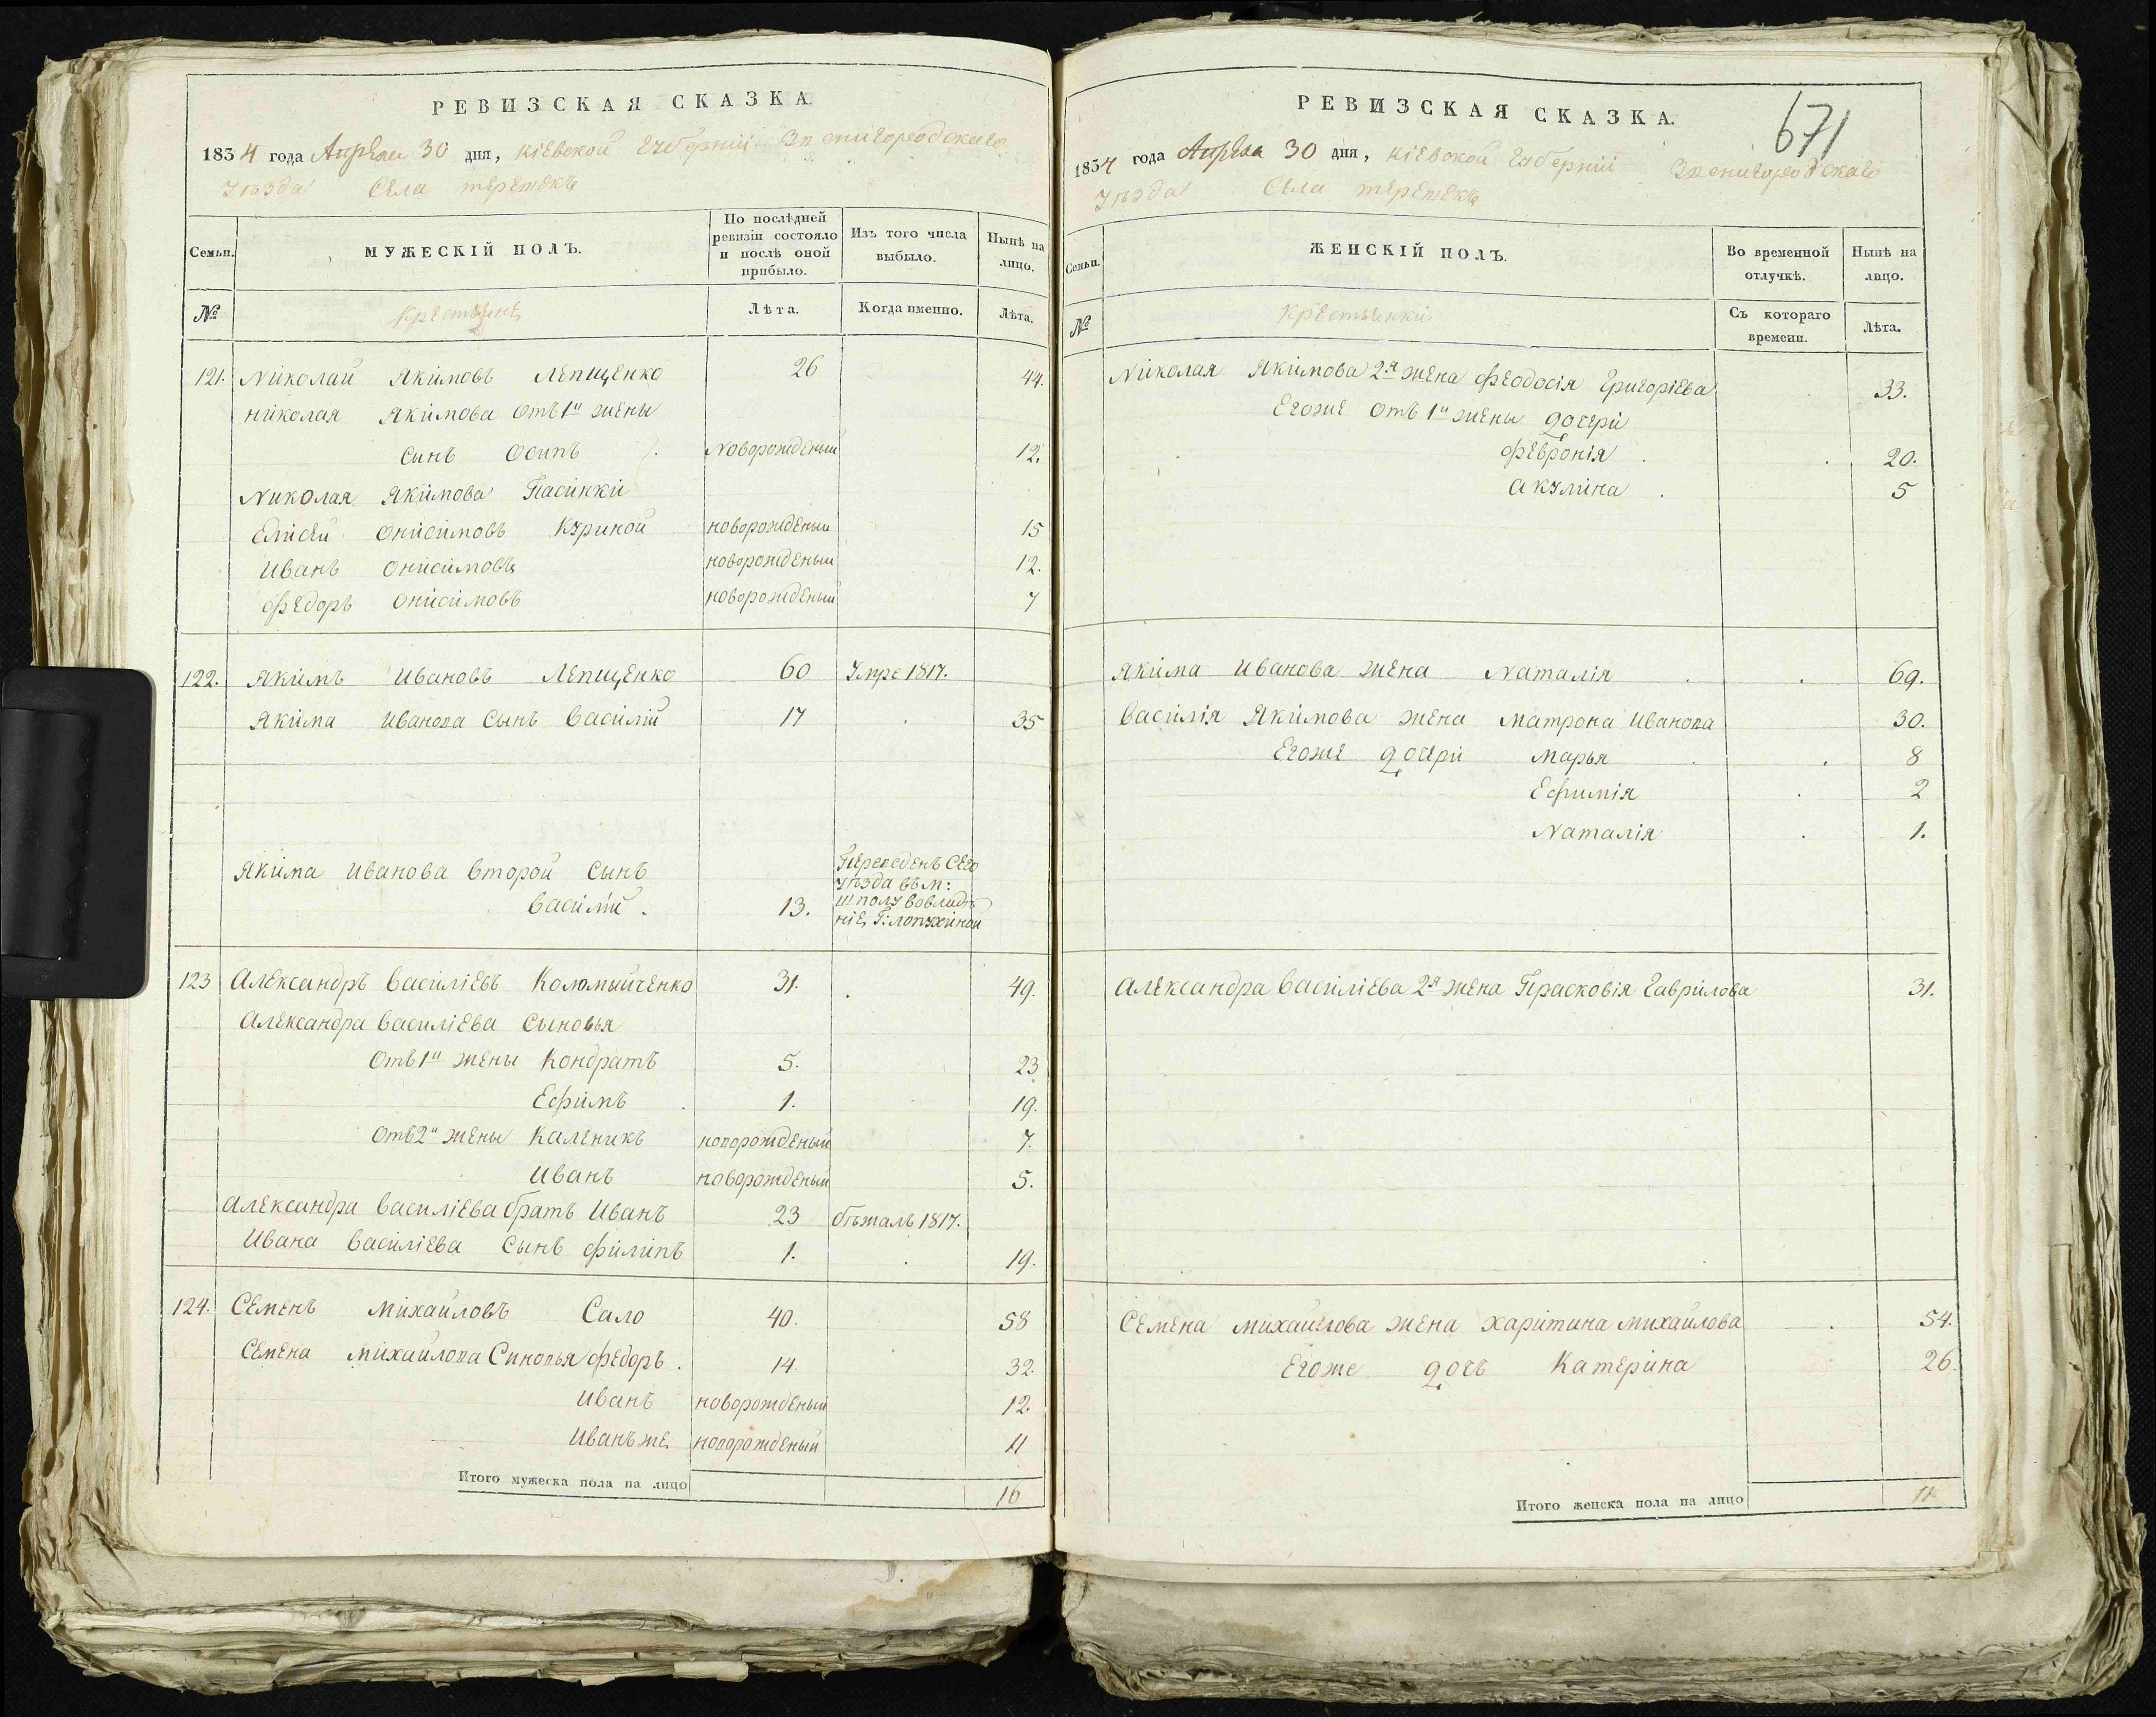 РЕВИЗСКАЯ СКАЗКА.
1834 года Апреля 30 дня, Кіевской Губерніи Звенигородскаго
Уѣзда Села терешекъ
Семьи.
МУЖЕСКІЙ ПОЛЪ.
По послѣдней ревизіи состояло и послѣ оной прибыло.
Изъ того числа выбыло.
Нынѣ на лицо.
№
Крестьяне
Лѣта.
Когда именно.
Лѣта.
121. Николай Якимовъ Лепищенко 26 44.
Николая Якимова отъ 1й жены
синъ Осипъ новорожденый 12.
Николая Якимова Пасинки
Елисѣй Онисимовъ Куриной новорожденый 15
Иванъ Онисимовъ новорожденый 12.
Федоръ Онисимовъ новорожденый 7
122. Якимъ Ивановъ Лепищенко 60 Умре 1817.
Якима Иванова сынъ Василій 17 35
Якима Иванова второй сынъ
Василій. 13. Переведенъ сего
уѣзда въ м:
Шполу вовладѣ
ніе Г: Лопухиной
123 Александръ Василіевъ Коломыйченко 31. 49.
Александра Василіева сыновья
Отъ 1й жены Кондратъ 5. 23
Ефимъ 1. 19.
Отъ 2й жены Каленикъ новорожденый 7.
Иванъ новорожденый 5.
Александра Василіева братъ Иванъ 23 бѣжалъ 1817.
Ивана Василіева сынъ Филипъ 1. 19.
124. Семенъ Михайловъ Сало 40. 58
Семена Михайлова Синовья Федоръ. 14. 32.
Иванъ новорожденый 12.
Иванъ же новорожденый 11
Итого мужеска пола на лицо 16
671
РЕВИЗСКАЯ СКАЗКА.
1834 года Апреля 30 дня, Кіевской Губерніи Звенигородскаго
Уѣзда Села терешекъ
Семьи.
ЖЕНСКІЙ ПОЛЪ.
Во временной отлучкѣ.
Нынѣ на лицо.
№
Крестьянки
Съ котораго времени.
Лѣта.
Николая Якимова 2я жена Феодосія Григоріева 33.
Егоже отъ 1й жены дочери
Февронія 20.
Акулина 5
Якима Иванова жена Наталія 69.
Василія Якимова жена Матрона Иванова 30.
Егоже дочери Марья 8
Ефимія 2
Наталія 1.
Александра Василіева 2я жена Прасковія Гаврилова 31.
Семена Михайлова жена Харитина Михайлова 54.
Егоже дочь Катерина 26.
Итого женска пола на лицо 11.